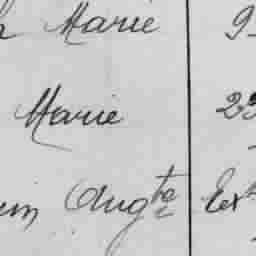 Marie 9
Marie 23
Augta Ext